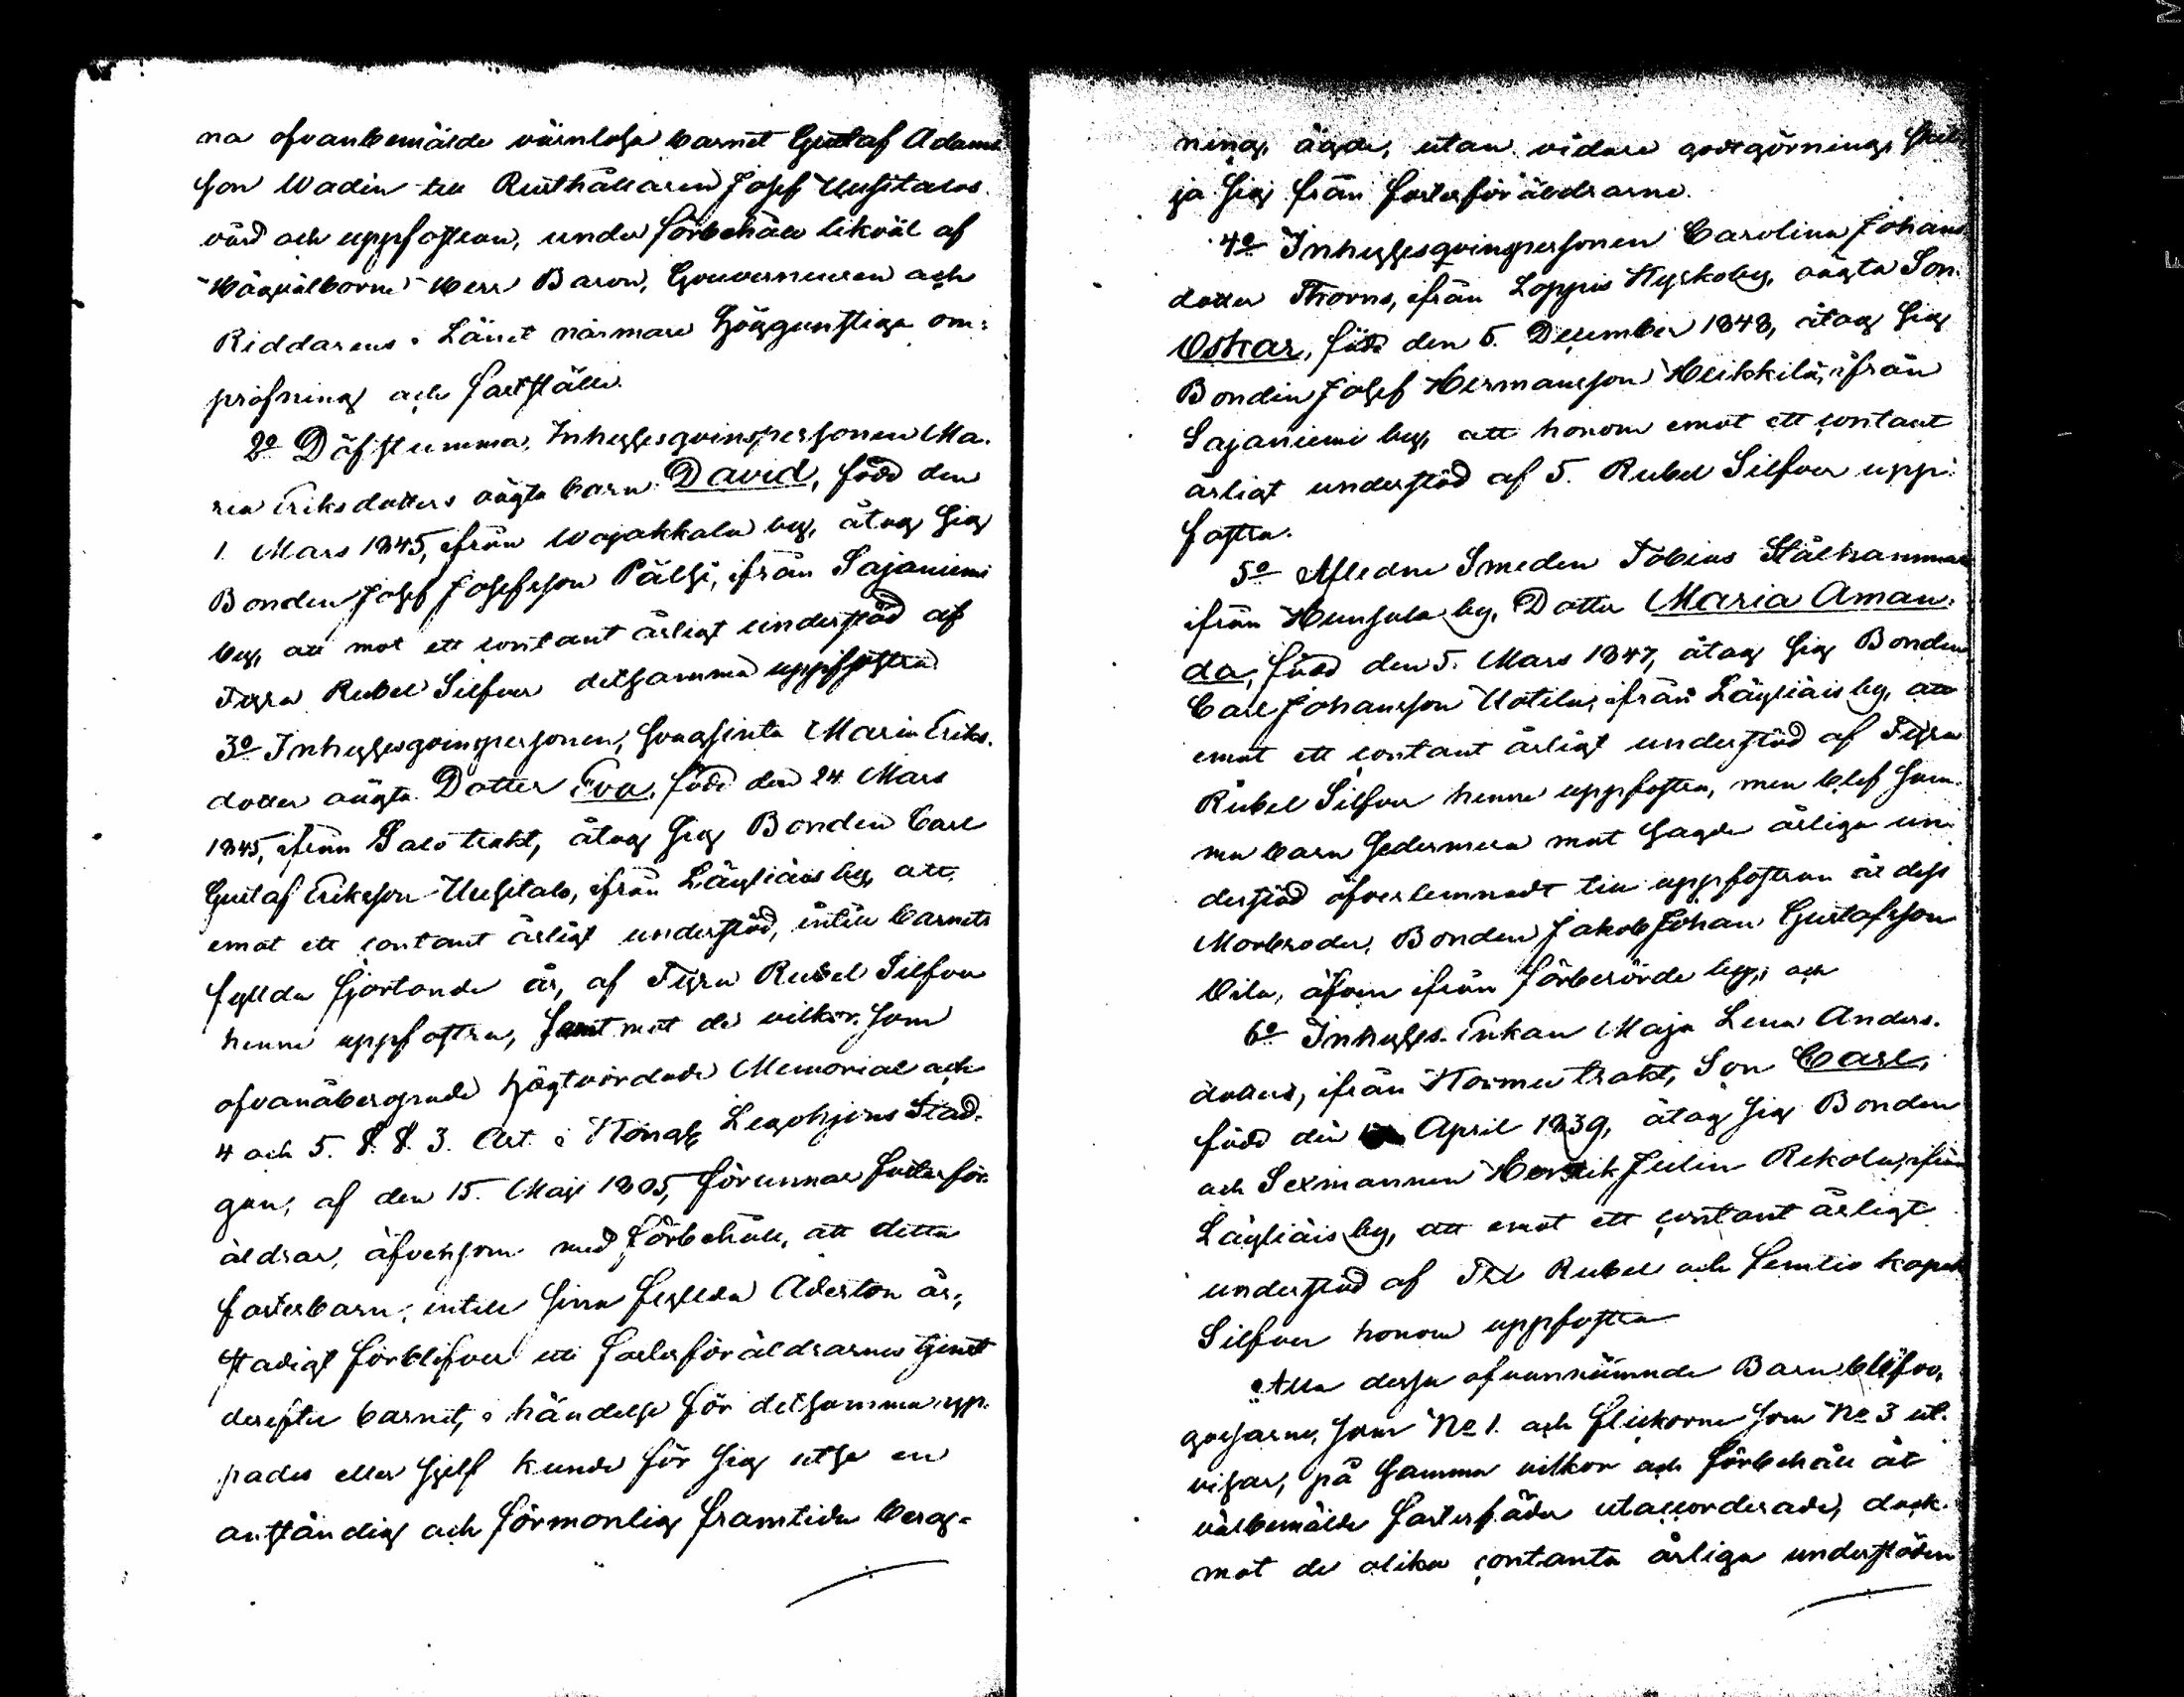 na ofvanbemälde värnlösa barnet Gustaf Adams
son Wadin till Rusthållaren Josef Uusitalos
vård och uppfostran, under förbehåll likväl af
Högvälborne Herr Baron, Gouverneuren och
Riddarens i Länet närmare höggunstiga om-
pröfning och fastställe.
2o Döfstumma, Inhysesqvinspersonen Ma-
ria Eriksdotters oägta barn David, född den
1. Mars 1845, ifrån Wojakkala by, åtog sig
Bonden Josef Josefsson Pälsi, ifrån Sajaniemi
by, att mot ett contant årligt understöd af
Fyra Rubel Silfver detsamma uppfostra
3o Inhysesqvinspersonen, svagsinta Maria Eriks-
dotter oägta Dotter Eva, född den 24 Mars
1845, ifrån Salo trakt, åtog sig Bonden Carl
Gustaf Eriksson Uusitalo, ifrån Läyliäis by, att
emot ett contant årligt understöd, intill barnets
fyllda fjortonde år, af Fyra Rubel Silfver
henne uppfostra, samt mot de vilkor, som
ofvanåberopade högtvördade Memorial och
4 och 5. §.§. 3. Art. i Kongl. Legohjons Stad-
gan, af den 15. Maji 1805, förunnar fosterför-
äldrar, äfvensom med förbehåll, att detta
fosterbarn, intill sina fyllda Aderton år,
stadigt förblifver i fosterföräldrarnes tjenst
derefter barnet, i händelse för detsamma yp-
pades eller sjelf kunde för sig utse en
anständig och förmonlig framtida berg-
ning, ägde, utan vidare godtgörning, skil-
ja sig från fosterföräldrarne.
4o Inhysesqvinspersonen Carolina Johans
dotter Thorns, ifrån Loppis Kyrkoby, oägta Son
Oskar, född den 5. December 1848, åtog sig
Bonden Josef Hermansson Heikkilä, ifrån
Sajaniemi by, att honom emot ett contant
årligt understöd af 5. Rubel Silfver upp-
fostra.
5o Aflidne Smeden Tobias Stålhammar
ifrån Hunsala by, Dotter Maria Aman-
da, född den 5. Mars 1847, åtog sig Bonden
Carl Johansson Uotila, ifrån Läyliäis by, att
emot ett contant årligt understöd af Fyra
Rubel Silfver henne uppfostra, men blef sam-
ma barn sedermera mot sagde årliga un-
derstöd öfverlemnadt till uppfostran åt dess
Morbroder, Bonden Jakob Johan Gustafsson
Oila, äfven ifrån förberörde by, och
6o Inhyses Enkan Maja Lena Anders-
dotters, ifrån Kormu trakt, Son Carl,
född den April 1839, åtog sig Bonden
och Sexmannen Henrik Julin Rekola, ifrån
Läyliäis by, att emot ett contant årligt
understöd af Tre Rubel och femtio kopek
Silfver honom uppfostra
Alla dessa ofvannämnde Barn blefvo,
gossarne, som No 1. och flickorne som No 3 ut-
visar, på samma vilkor och förbehåll åt
välbemälde fosterfäder utaccorderade, dock
mot de olika contanta årliga understöden